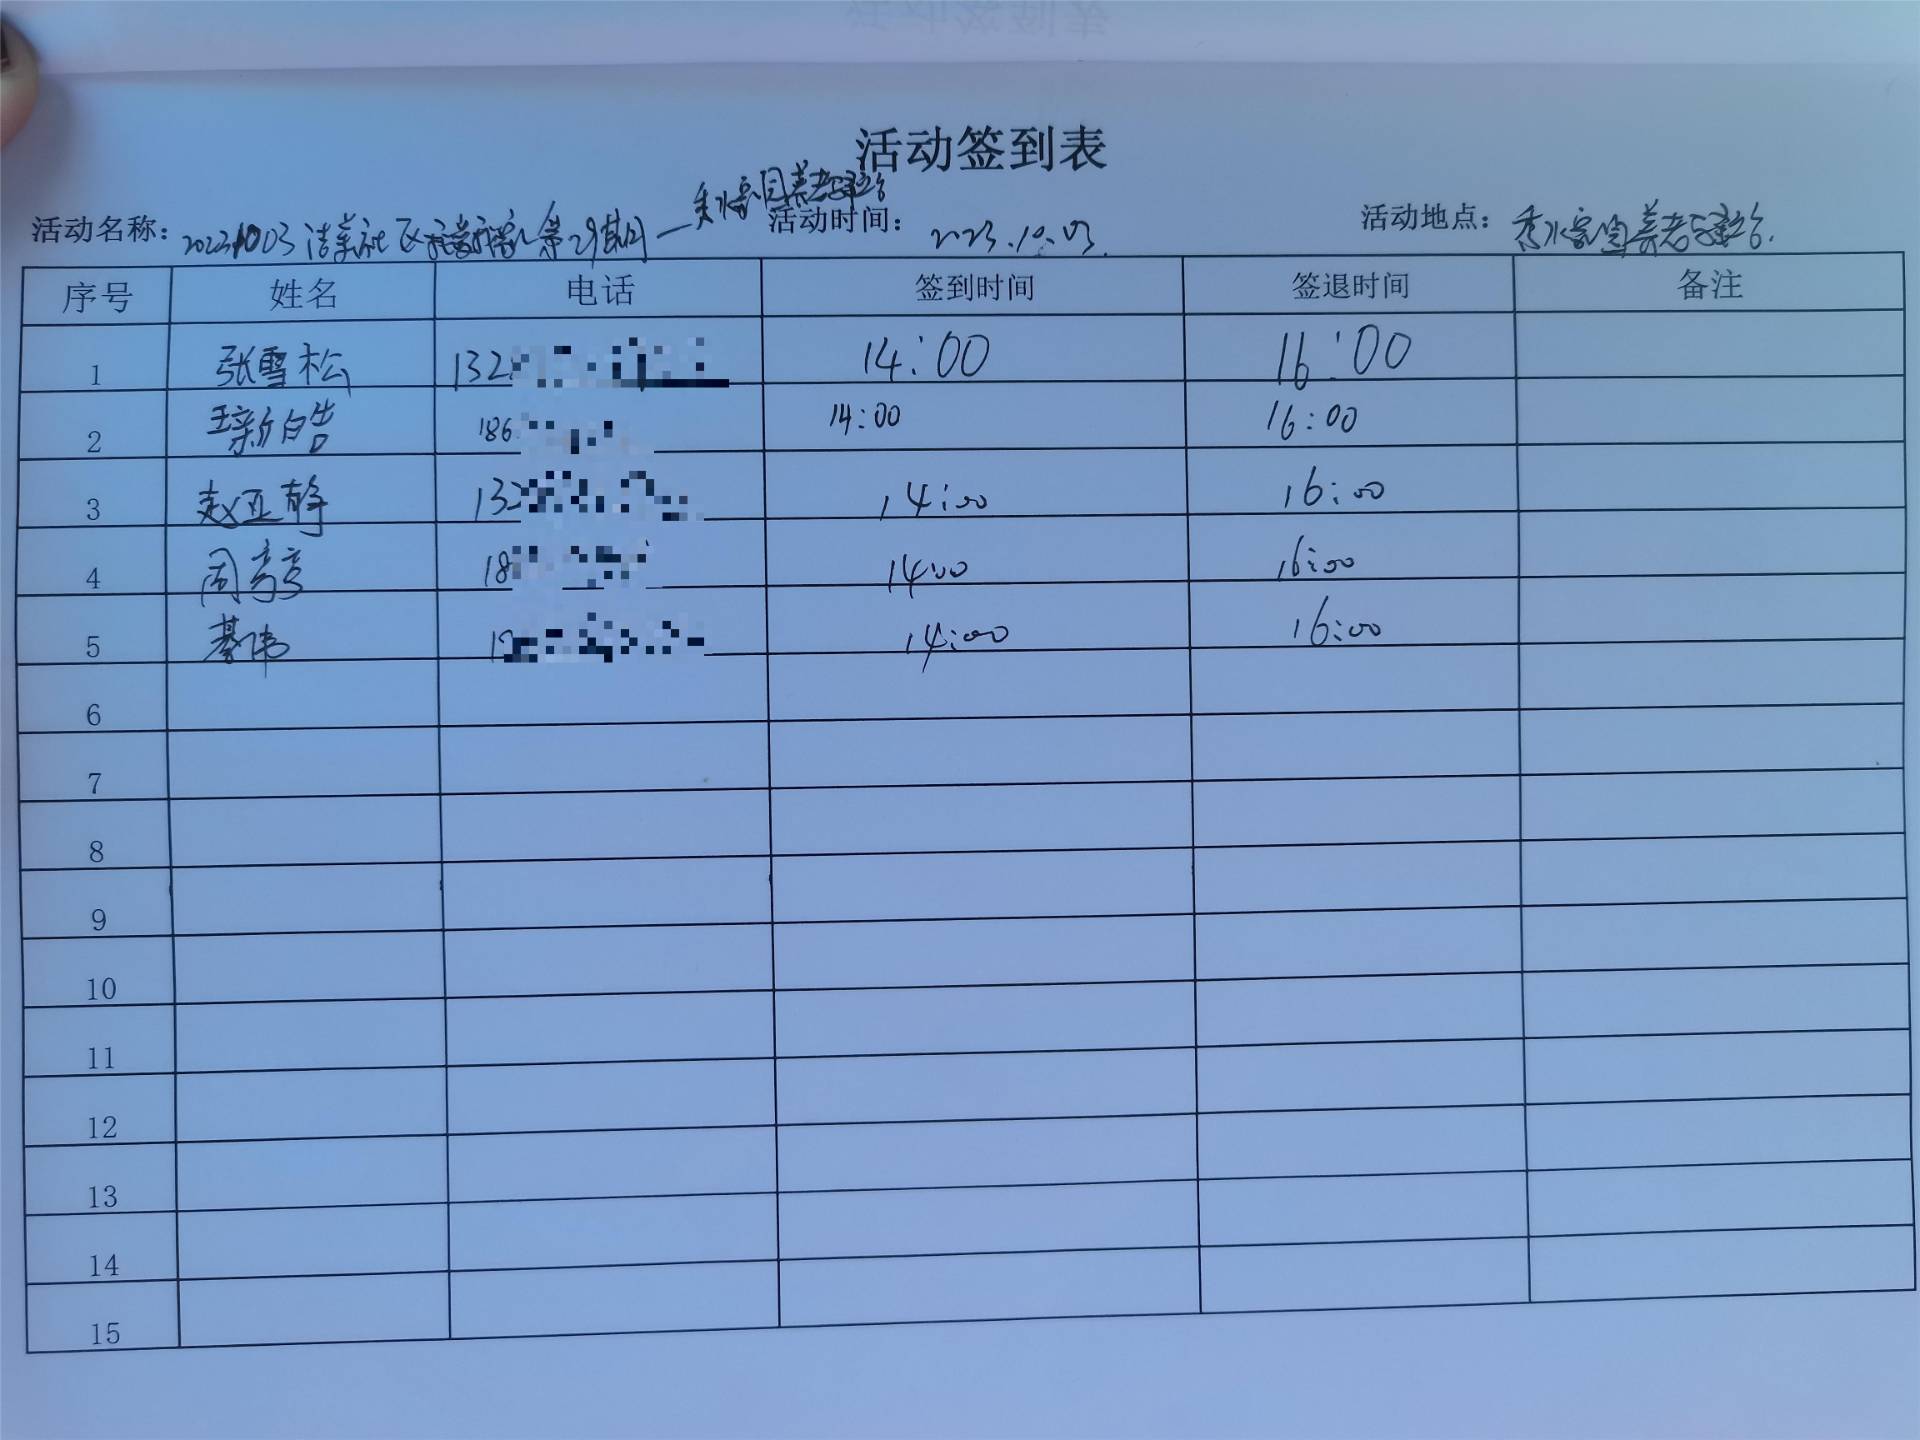 活动签到表
活动名称： 20231003 洁美社区 第29期 — 秀水家园养老驿站
活动时间： 2023.10.03.
活动地点： 秀水家园养老驿站.
序号 姓名 电话 签到时间 签退时间 备注
1 张雪松 132 14:00 16:00
2 王新皓 186 14:00 16:00
3 赵亚静 132 14:00 16:00
4 周亭亭 18 14:00 16:00
5 綦伟 14:00 16:00
6
7
8
9
10
11
12
13
14
15